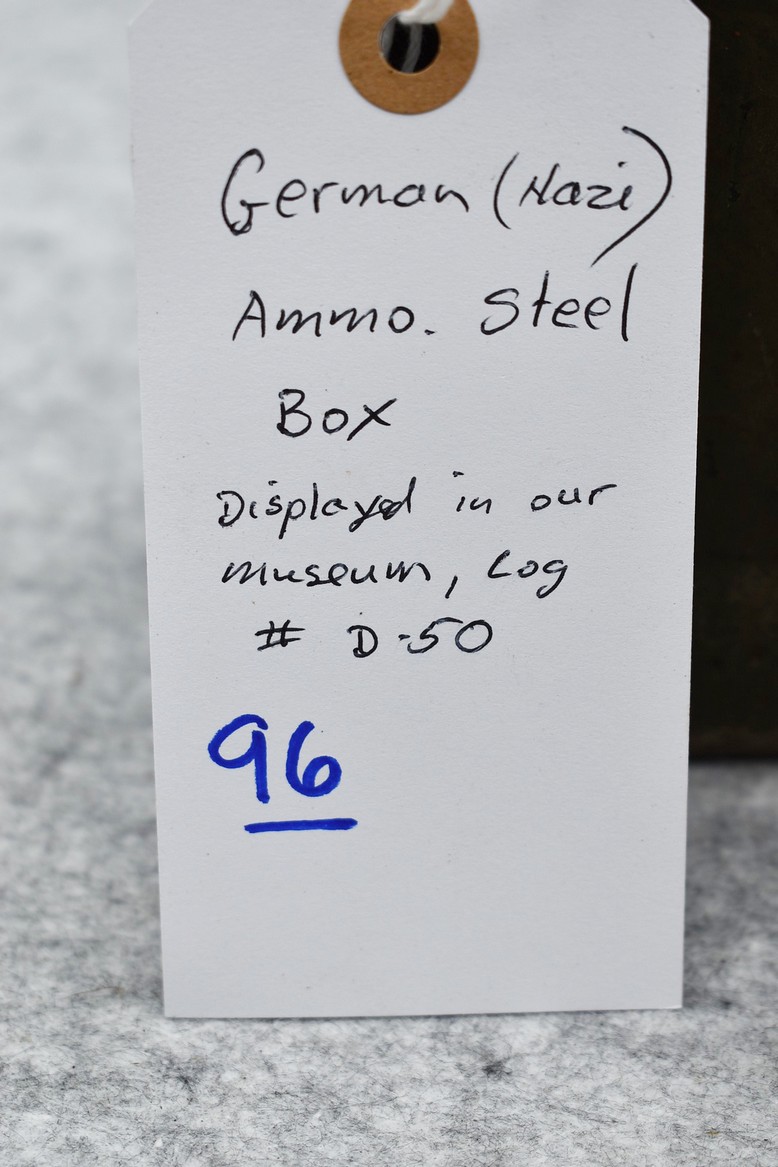 German (Nazi)
Ammo. Steel
Box
Displayed in our
museum, Log
# D-50
96